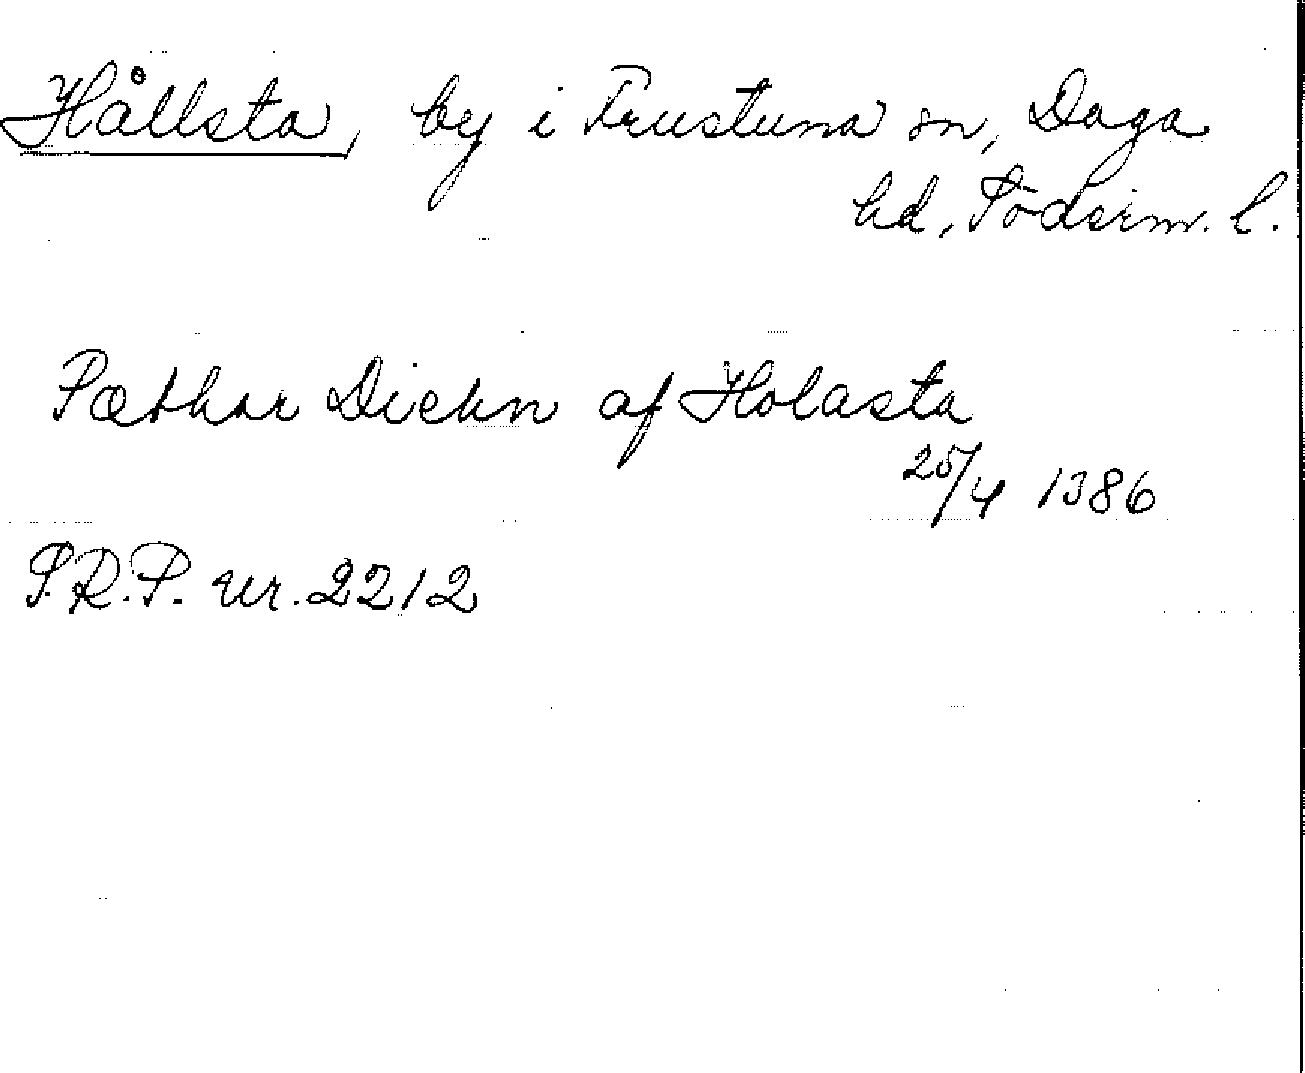 Hållsta, by i Frustuna sn, Daga
hd, Södserm. l.
Pæthar Diekn af Holasta
25/4 1386
S.R.P. nr. 2212